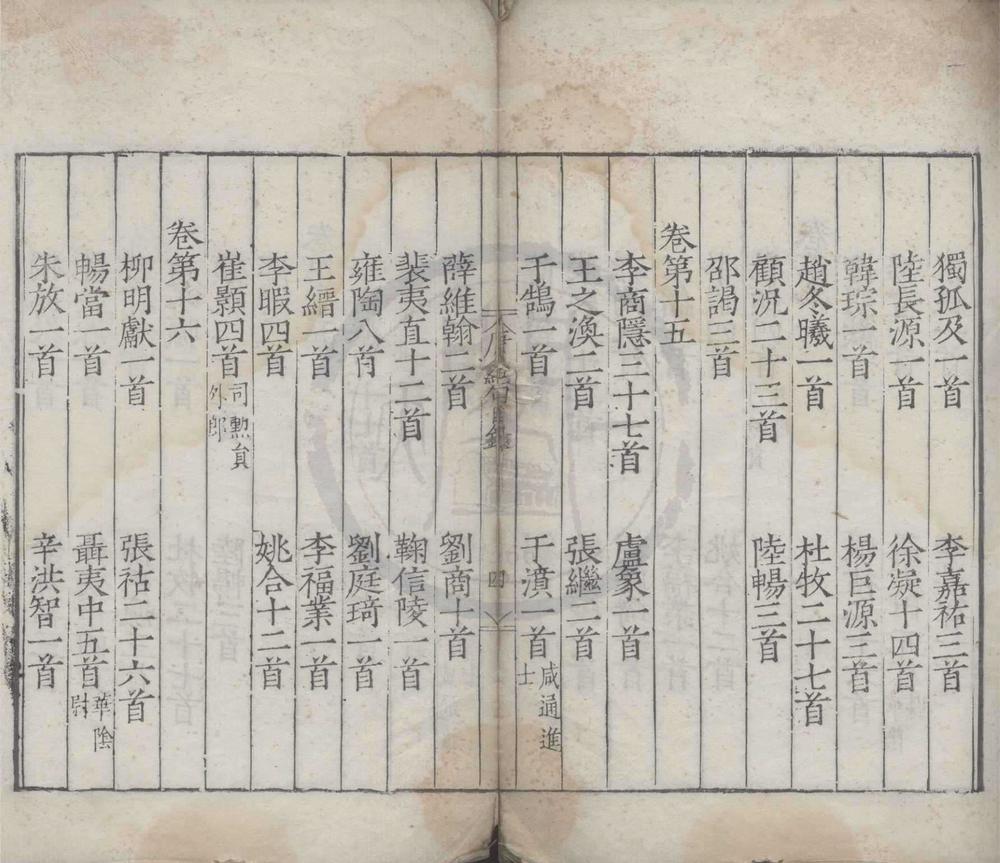 獨孤及一首 李嘉祐三首
陸長源一首 徐凝十四首
韓琮一首 楊巨源三首
趙冬曦一首 杜牧二十七首
顧況二十三首 陸暢三首
邵謁三首
卷第十五
李商隱三十七首 盧象一首
王之渙二首 張繼二首
于鵠一首 于濆一首咸通進士
唐絕句目錄 四
薛維翰二首 劉商十首
裴夷直十二首 鞠信陵一首
雍陶八首 劉庭琦一首
王縉一首 李福業一首
李暇四首 姚合十二首
崔顥四首司勲員外郎
卷第十六
柳明獻一首 張祜二十六首
暢當一首 聶夷中五首華陰尉
朱放一首 辛洪智一首